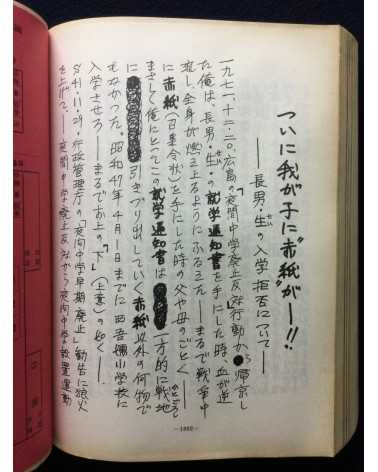 ついに我が子に“赤紙”が――!!
――長男・生の入学拒否について――
せい
一九七一、十二・二〇、広島の「夜間中学廃止反対行動」から帰京し
た俺は、長男「生」の就学通知書を手にした時、血が逆
せい
流し、全身が燃え上るようにふるえた――まるで戦争中
に赤紙(召集令状)を手にした時の父や母のごとく――
まさしく俺にとってこの就学通知書は一方的に戦地
のどころ
に引きづり出していく赤紙以外の何物で
もなかった。昭和47年4月1日までに西吾嬬小学校に
入学させろ――まるでお上の「下」(上意)の如く――
S41・11・29・行政管理庁の「夜間中学早期廃止」勧告に狼火
を上げて、――夜間中学廃止反対から夜間中学設置運動
―1002―